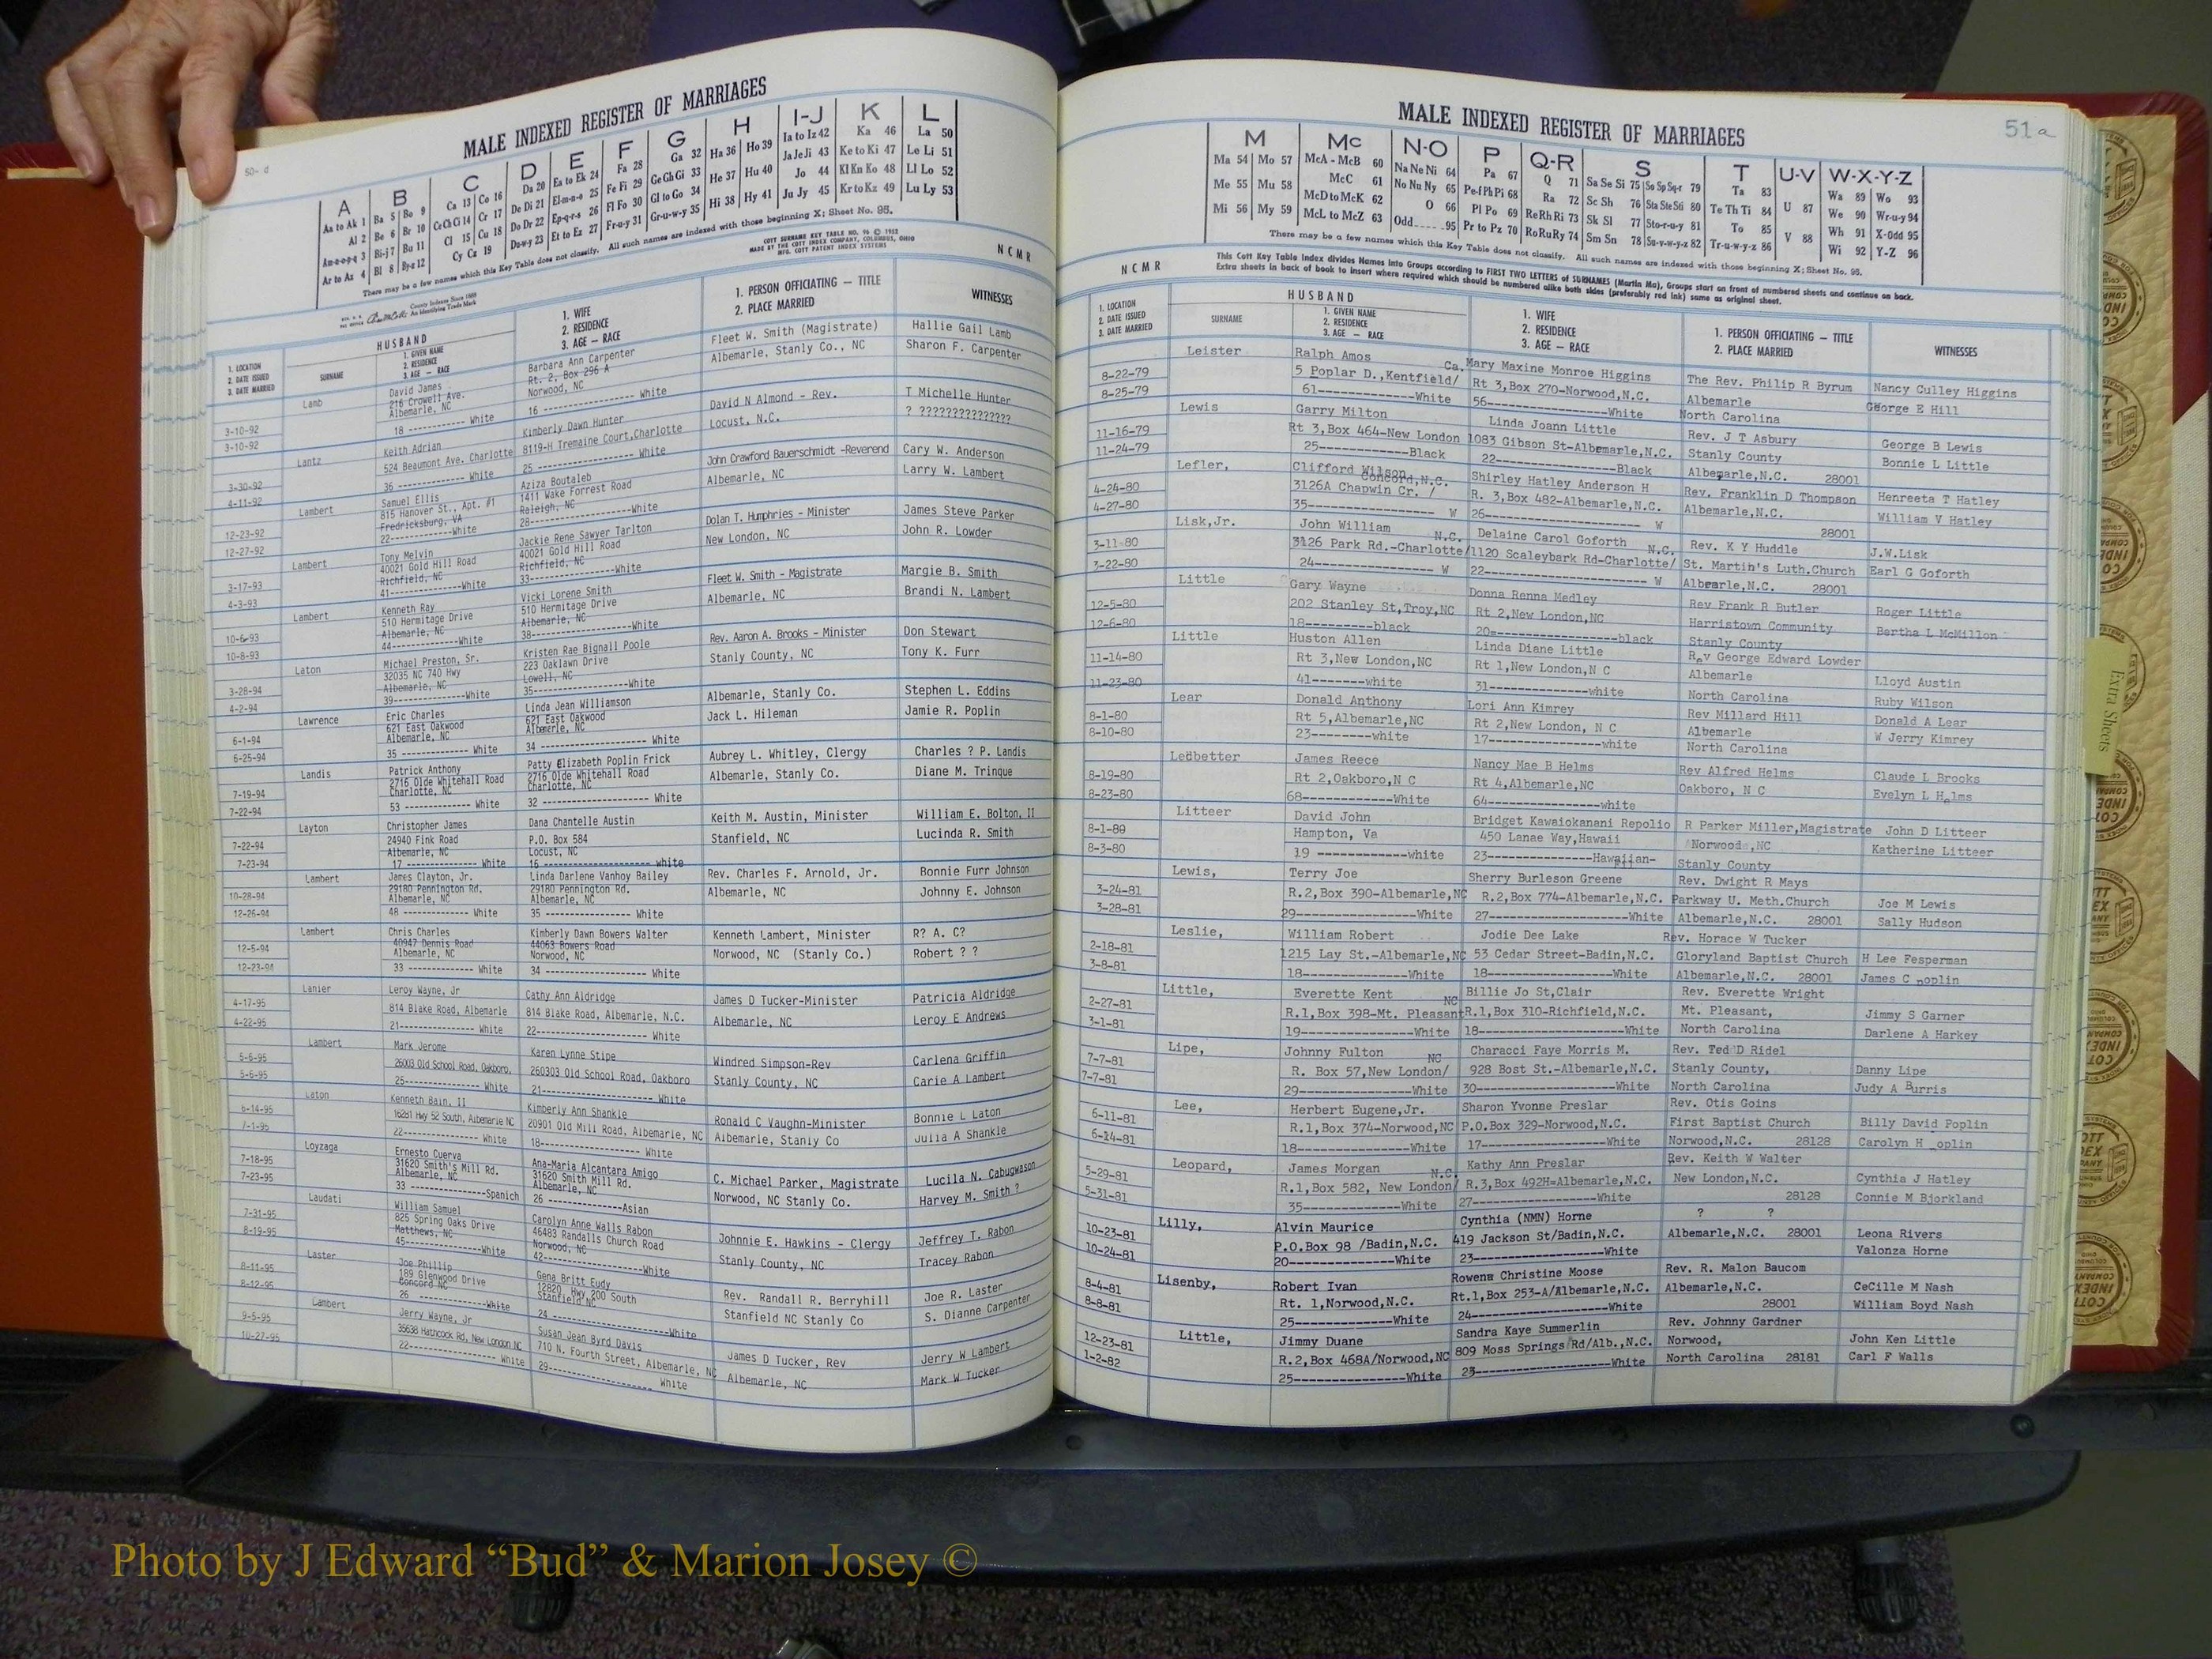 50- d
MALE INDEXED REGISTER OF MARRIAGES
A B C D E F G H I-J K L
Aa to Ak 1 Ba 5 Bo 9 Ca 13 Co 16 Da 20 Ea to Ek 24 Fa 28 Ga 32 Ha 36 Ho 39 Ia to Iz 42 Ka 46 La 50
Al 2 Be 6 Br 10 Ce Ch Ci 14 Cr 17 De Di 21 El-m-n-o 25 Fe Fi 29 Ge Gh Gi 33 He 37 Hu 40 Ja Je Ji 43 Ke to Ki 47 Le Li 51
Am-e-o-p-q 3 Bi-j 7 Bu 11 Cl 15 Cu 18 Do Dr 22 Ep-q-r-s 26 Fl Fo 30 Gl to Go 34 Hi 38 Hy 41 Jo 44 Kl Kn Ko 48 Ll Lo 52
Ar to Az 4 Bl 8 By-z 12 Cy Cz 19 Du-w-y 23 Et to Ez 27 Fr-u-y 31 Gr-u-w-y 35 Ju Jy 45 Kr to Kz 49 Lu Ly 53
There may be a few names which this Key Table does not classify. All such names are indexed with those beginning X; Sheet No. 95.
County Indexes Since 1888
An Identifying Trade Mark
COTT SURNAME KEY TABLE NO. 96 © 1952
MADE BY THE COTT INDEX COMPANY, COLUMBUS, OHIO
MFG. COTT PATENT INDEX SYSTEMS
N C M R
1. LOCATION
2. DATE ISSUED
3. DATE MARRIED
HUSBAND
SURNAME
1. GIVEN NAME
2. RESIDENCE
3. AGE — RACE
1. WIFE
2. RESIDENCE
3. AGE — RACE
1. PERSON OFFICIATING — TITLE
2. PLACE MARRIED
WITNESSES
Lamb David James Barbara Ann Carpenter Fleet W. Smith (Magistrate) Hallie Gail Lamb
3-10-92 216 Crowell Ave. Rt. 2, Box 296 A Albemarle, Stanly Co., NC Sharon F. Carpenter
3-10-92 Albemarle, NC Norwood, NC
18 ------------ White 16 ------------ White
Lantz Keith Adrian Kimberly Dawn Hunter David N Almond - Rev. T Michelle Hunter
3-30-92 524 Beaumont Ave. Charlotte 8119-H Tremaine Court,Charlotte Locust, N.C. ? ???????????????
4-11-92 36 ------------ White 25 ------------ White
Lambert Samuel Ellis Aziza Boutaleb John Crawford Bauerschmidt -Reverend Cary W. Anderson
12-23-92 815 Hanover St., Apt. #1 1411 Wake Forrest Road Albemarle, NC Larry W. Lambert
12-27-92 Fredricksburg, VA Raleigh, NC
22------------White 28------------White
Lambert Tony Melvin Jackie Rene Sawyer Tarlton Dolan T. Humphries - Minister James Steve Parker
3-17-93 40021 Gold Hill Road 40021 Gold Hill Road New London, NC John R. Lowder
4-3-93 Richfield, NC Richfield, NC
41------------White 33------------White
Lambert Kenneth Ray Vicki Lorene Smith Fleet W. Smith - Magistrate Margie B. Smith
10-6-93 510 Hermitage Drive 510 Hermitage Drive Albemarle, NC Brandi N. Lambert
10-8-93 Albemarle, NC Albemarle, NC
44------------White 38------------White
Laton Michael Preston, Sr. Kristen Rae Bignall Poole Rev. Aaron A. Brooks - Minister Don Stewart
3-28-94 32035 NC 740 Hwy 223 Oaklawn Drive Stanly County, NC Tony K. Furr
4-2-94 Albemarle, NC Lowell, NC
39------------White 35------------White
Lawrence Eric Charles Linda Jean Williamson Albemarle, Stanly Co. Stephen L. Eddins
6-1-94 621 East Oakwood 621 East Oakwood Jack L. Hileman Jamie R. Poplin
6-25-94 Albemarle, NC Albemarle, NC
35 ------------ White 34 ------------ White
Landis Patrick Anthony Patty Elizabeth Poplin Frick Aubrey L. Whitley, Clergy Charles ? P. Landis
7-19-94 2716 Olde Whitehall Road 2716 Olde Whitehall Road Albemarle, Stanly Co. Diane M. Trinque
7-22-94 Charlotte, NC Charlotte, NC
53 ------------ White 32 ------------ White
Layton Christopher James Dana Chantelle Austin Keith M. Austin, Minister William E. Bolton, II
7-22-94 24940 Fink Road P.O. Box 584 Stanfield, NC Lucinda R. Smith
7-23-94 Albemarle, NC Locust, NC
17 ------------ White 16 ------------ white
Lambert James Clayton, Jr. Linda Darlene Vanhoy Bailey Rev. Charles F. Arnold, Jr. Bonnie Furr Johnson
10-28-94 29180 Pennington Rd. 29180 Pennington Rd. Albemarle, NC Johnny E. Johnson
12-26-94 Albemarle, NC Albemarle, NC
48 ------------ White 35 ------------ White
Lambert Chris Charles Kimberly Dawn Bowers Walter Kenneth Lambert, Minister R? A. C?
12-5-94 40947 Dennis Road 44063 Bowers Road Norwood, NC (Stanly Co.) Robert ? ?
12-23-94 Albemarle, NC Norwood, NC
33 ------------ White 34 ------------ White
Lanier Leroy Wayne, Jr Cathy Ann Aldridge James D Tucker-Minister Patricia Aldridge
4-17-95 814 Blake Road, Albemarle 814 Blake Road, Albemarle, N.C. Albemarle, NC Leroy E Andrews
4-22-95 21------------ White 22------------ White
Lambert Mark Jerome Karen Lynne Stipe Windred Simpson-Rev Carlena Griffin
5-6-95 26003 Old School Road, Oakboro, 260303 Old School Road, Oakboro Stanly County, NC Carie A Lambert
5-6-95 25------------ White 21------------ White
Laton Kenneth Bain, II Kimberly Ann Shankle Ronald C Vaughn-Minister Bonnie L Laton
6-14-95 16281 Hwy 52 South, Albemarle NC 20901 Old Mill Road, Albemarle, NC Albemarle, Stanly Co Julia A Shankle
7-1-95 22------------ White 18------------ White
Loyzaga Ernesto Cuerva Ana-Maria Alcantara Amigo C. Michael Parker, Magistrate Lucila N. Cabugwason
7-18-95 31620 Smith's Mill Rd. 31620 Smith Mill Rd. Norwood, NC Stanly Co. Harvey M. Smith ?
7-23-95 Albemarle, NC Albemarle, NC
33 ------------Spanish 26 ------------Asian
Laudati William Samuel Carolyn Anne Walls Rabon Johnnie E. Hawkins - Clergy Jeffrey T. Rabon
7-31-95 825 Spring Oaks Drive 46483 Randalls Church Road Stanly County, NC Tracey Rabon
8-19-95 Matthews, NC Norwood, NC
45------------White 42------------White
Laster Joe Phillip Gena Britt Eudy Rev. Randall R. Berryhill Joe R. Laster
8-11-95 189 Glenwood Drive 12820 Hwy 200 South Stanfield NC Stanly Co S. Dianne Carpenter
8-12-95 Concord NC Stanfield NC
26 ------------White 24 ------------White
Lambert Jerry Wayne, Jr Susan Jean Byrd Davis James D Tucker, Rev Jerry W Lambert
9-5-95 35638 Hathcock Rd, New London NC 710 N. Fourth Street, Albemarle, NC Albemarle, NC Mark W Tucker
10-27-95 22------------ White 29------------ White
51a
MALE INDEXED REGISTER OF MARRIAGES
M Mc N-O P Q-R S T U-V W-X-Y-Z
Ma 54 Mo 57 McA - McB 60 Na Ne Ni 64 Pa 67 Q 71 Sa Se Si 75 So Sp Sq-r 79 Ta 83 U 87 Wa 89 Wo 93
Me 55 Mu 58 McC 61 No Nu Ny 65 Pe-f Ph Pi 68 Ra 72 Sc Sh 76 Sta Ste Sti 80 Te Th Ti 84 V 88 We 90 Wr-u-y 94
Mi 56 My 59 McD to McK 62 O 66 Pl Po 69 Re Rh Ri 73 Sk Sl 77 Sto-r-u-y 81 To 85 Wh 91 X-Odd 95
McL to McZ 63 Odd.....95 Pr to Pz 70 Ro Ru Ry 74 Sm Sn 78 Su-v-w-y-z 82 Tr-u-w-y-z 86 Wi 92 Y-Z 96
There may be a few names which this Key Table does not classify. All such names are indexed with those beginning X; Sheet No. 95.
This Cott Key Table Index divides Names into Groups according to FIRST TWO LETTERS of SURNAMES (Martin Ma), Groups start on front of numbered sheets and continue on back.
Extra sheets in back of book to insert where required which should be numbered alike both sides (preferably red ink) same as original sheet.
N C M R
1. LOCATION
2. DATE ISSUED
3. DATE MARRIED
HUSBAND
SURNAME
1. GIVEN NAME
2. RESIDENCE
3. AGE — RACE
1. WIFE
2. RESIDENCE
3. AGE — RACE
1. PERSON OFFICIATING — TITLE
2. PLACE MARRIED
WITNESSES
Leister Ralph Amos Ca. Mary Maxine Monroe Higgins The Rev. Philip R Byrum Nancy Culley Higgins
8-22-79 5 Poplar D.,Kentfield/ Rt 3,Box 270-Norwood,N.C. Albemarle George E Hill
8-25-79 61------------White 56------------White North Carolina
Lewis Garry Milton Linda Joann Little Rev. J T Asbury George B Lewis
11-16-79 Rt 3,Box 464-New London 1083 Gibson St-Albemarle,N.C. Stanly County Bonnie L Little
11-24-79 25------------Black 22------------Black Albemarle,N.C. 28001
Lefler, Clifford Wilson Concord,N.C. Shirley Hatley Anderson H Rev. Franklin D Thompson Henreeta T Hatley
4-24-80 3126A Chapwin Cr. / R. 3,Box 482-Albemarle,N.C. Albemarle,N.C. William V Hatley
4-27-80 35------------ W 26------------ W 28001
Lisk,Jr. John William N.C. Delaine Carol Goforth N.C. Rev. K Y Huddle J.W.Lisk
3-11-80 3126 Park Rd.-Charlotte/ 1120 Scaleybark Rd-Charlotte/ St. Martin's Luth.Church Earl G Goforth
3-22-80 24------------ W 22------------ W Albemarle,N.C. 28001
Little Gary Wayne Donna Renna Medley Rev Frank R Butler Roger Little
12-5-80 202 Stanley St,Troy,NC Rt 2,New London,NC Harristown Community Bertha L McMillon
12-6-80 18---------black 20------------black Stanly County
Little Huston Allen Linda Diane Little Rev George Edward Lowder Lloyd Austin
11-14-80 Rt 3,New London,NC Rt 1,New London,N C Albemarle Ruby Wilson
11-23-80 41-------white 31------------white North Carolina
Lear Donald Anthony Lori Ann Kimrey Rev Millard Hill Donald A Lear
8-1-80 Rt 5,Albemarle,NC Rt 2,New London, N C Albemarle W Jerry Kimrey
8-10-80 23--------white 17------------white North Carolina
Ledbetter James Reece Nancy Mae B Helms Rev Alfred Helms Claude L Brooks
8-19-80 Rt 2,Oakboro,N C Rt 4,Albemarle,NC Oakboro, N C Evelyn L Helms
8-23-80 68------------White 64------------white
Litteer David John Bridget Kawaiokanani Repolio R Parker Miller,Magistrate John D Litteer
8-1-80 Hampton, Va 450 Lanae Way,Hawaii Norwood ,NC Katherine Litteer
8-3-80 19 ---------white 23------------Hawaiian- Stanly County
Lewis, Terry Joe Sherry Burleson Greene Rev. Dwight R Mays Joe M Lewis
3-24-81 R.2,Box 390-Albemarle,NC R.2,Box 774-Albemarle,N.C. Parkway U. Meth.Church Sally Hudson
3-28-81 29------------White 27------------White Albemarle,N.C. 28001
Leslie, William Robert Jodie Dee Lake Rev. Horace W Tucker H Lee Fesperman
2-18-81 1215 Lay St.-Albemarle,NC 53 Cedar Street-Badin,N.C. Gloryland Baptist Church James C oplin
3-8-81 18------------White 18------------White Albemarle,N.C. 28001
Little, Everette Kent NC Billie Jo St,Clair Rev. Everette Wright Jimmy S Garner
2-27-81 R.1,Box 398-Mt. Pleasant R.1,Box 310-Richfield,N.C. Mt. Pleasant, Darlene A Harkey
3-1-81 19------------White 18------------White North Carolina
Lipe, Johnny Fulton NC Characci Faye Morris M. Rev. Ted D Ridel Danny Lipe
7-7-81 R. Box 57,New London/ 928 Bost St.-Albemarle,N.C. Stanly County, Judy A Burris
7-7-81 29------------White 30------------White North Carolina
Lee, Herbert Eugene,Jr. Sharon Yvonne Preslar Rev. Otis Goins Billy David Poplin
6-11-81 R.1,Box 374-Norwood,NC P.O.Box 329-Norwood,N.C. First Baptist Church Carolyn H oplin
6-14-81 18------------White 17------------White Norwood,N.C. 28128
Leopard, James Morgan N.C. Kathy Ann Preslar Rev. Keith W Walter Cynthia J Hatley
5-29-81 R.1,Box 582, New London/ R.3,Box 492H=Albemarle,N.C. New London,N.C. Connie M Bjorkland
5-31-81 35------------White 27------------White 28128
Lilly, Alvin Maurice Cynthia (NMN) Horne ? ? Leona Rivers
10-23-81 P.O.Box 98 /Badin,N.C. 419 Jackson St/Badin,N.C. Albemarle,N.C. 28001 Valonza Horne
10-24-81 20------------White 23------------White
Lisenby, Robert Ivan Rowena Christine Moose Rev. R. Malon Baucom CeCille M Nash
8-4-81 Rt. 1,Norwood,N.C. Rt.1,Box 253-A/Albemarle,N.C. Albemarle,N.C. William Boyd Nash
8-8-81 25------------White 24------------White 28001
Little, Jimmy Duane Sandra Kaye Summerlin Rev. Johnny Gardner John Ken Little
12-23-81 R.2,Box 468A/Norwood,NC 809 Moss Springs Rd/Alb.,N.C. Norwood, Carl F Walls
1-2-82 25------------White 23------------White North Carolina 28181
Extra Sheets
Photo by J Edward “Bud” & Marion Josey ©